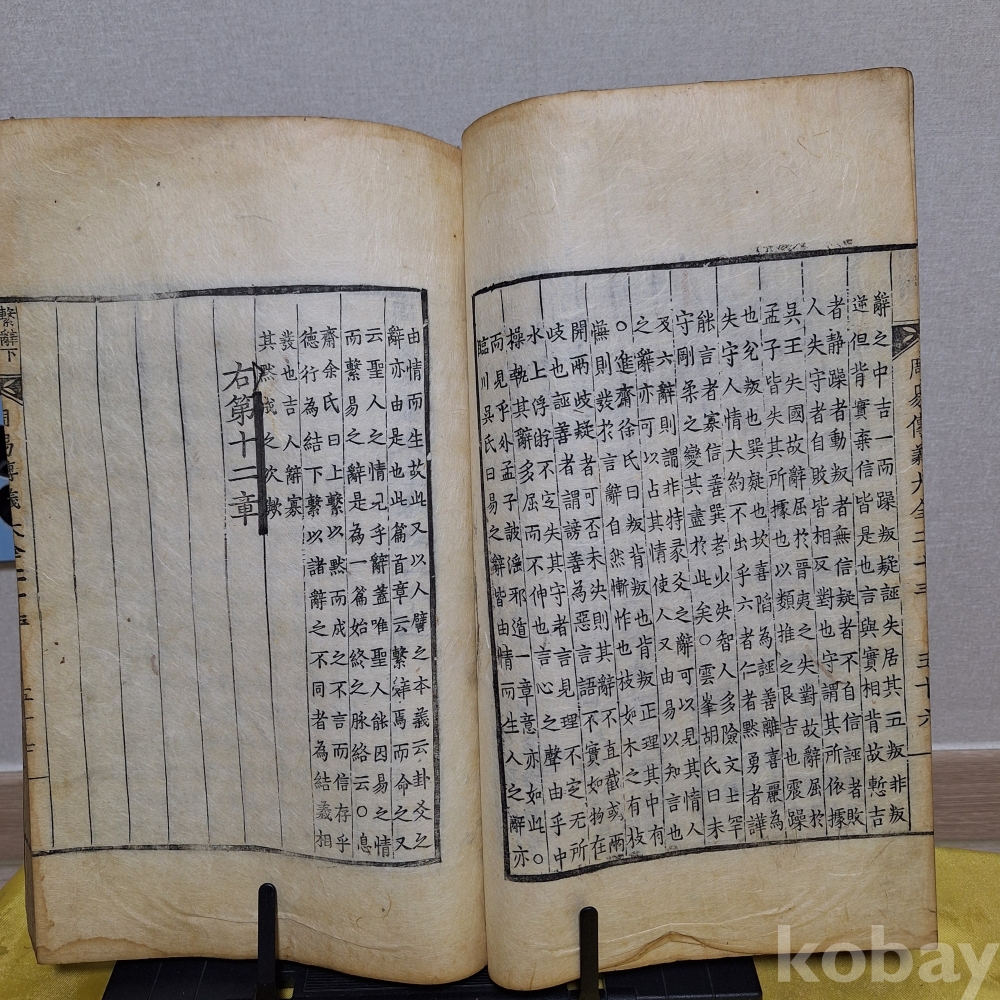 周易傳義大全二十三 五十六
辭之中吉一而躁叛疑誣失居其五叛非叛
逆但背實棄信皆是也言與實相背故慙吉
者静躁者動叛者無信疑者不自信誣者敗
人失守者自敗皆相反對也守謂其所依據
吳王失國故辭屈於晉夷之失對故辭屈於
孟子皆失其所據也以類推之艮吉也震躁
也兌叛也巽疑也坎喜陷為誣善離喜麗為
失守人情大約不出乎六者仁者黙勇者譁
能言者寡信善巽者少决智人多險文士罕
守剛柔之變其盡於此矣○雲峯胡氏曰未
及六辭則謂非特彖爻之辭可以見其情人
之辭亦可以占其情使人又由易以知言也
○進齋徐氏曰叛背叛也肯叛正理其中有
慊則發於言辭自然慚怍也枝如木之有枝
開兩歧疑者可否未决則其辭不直截或兩
歧也誣善者謂謗善為惡言語不實如物在
水上俘游不定失其守者言見理不定无所
操執其辭多屈而不伸也言心之聲由乎中
而見乎外孟子詖滛邪遁一章意亦如此○
臨川吳氏曰易之辭皆由情而生人之辭亦
由情而生故此又以人譬之本義云卦爻之
辭亦由是也此篇首章云繫辭焉而命之又
云聖人之情見乎辭蓋唯聖人能因易之情
而繫易之辭是為一篇始終之脉絡云○息
齋余氏曰上繫以黙而成之不言而信存乎
德行為結下繫以諸辭之不同者為結義相
發也吉人辭寡
其黙成之次歟
右第十二章
繫辭下
周易傳義大全二十三
kobay